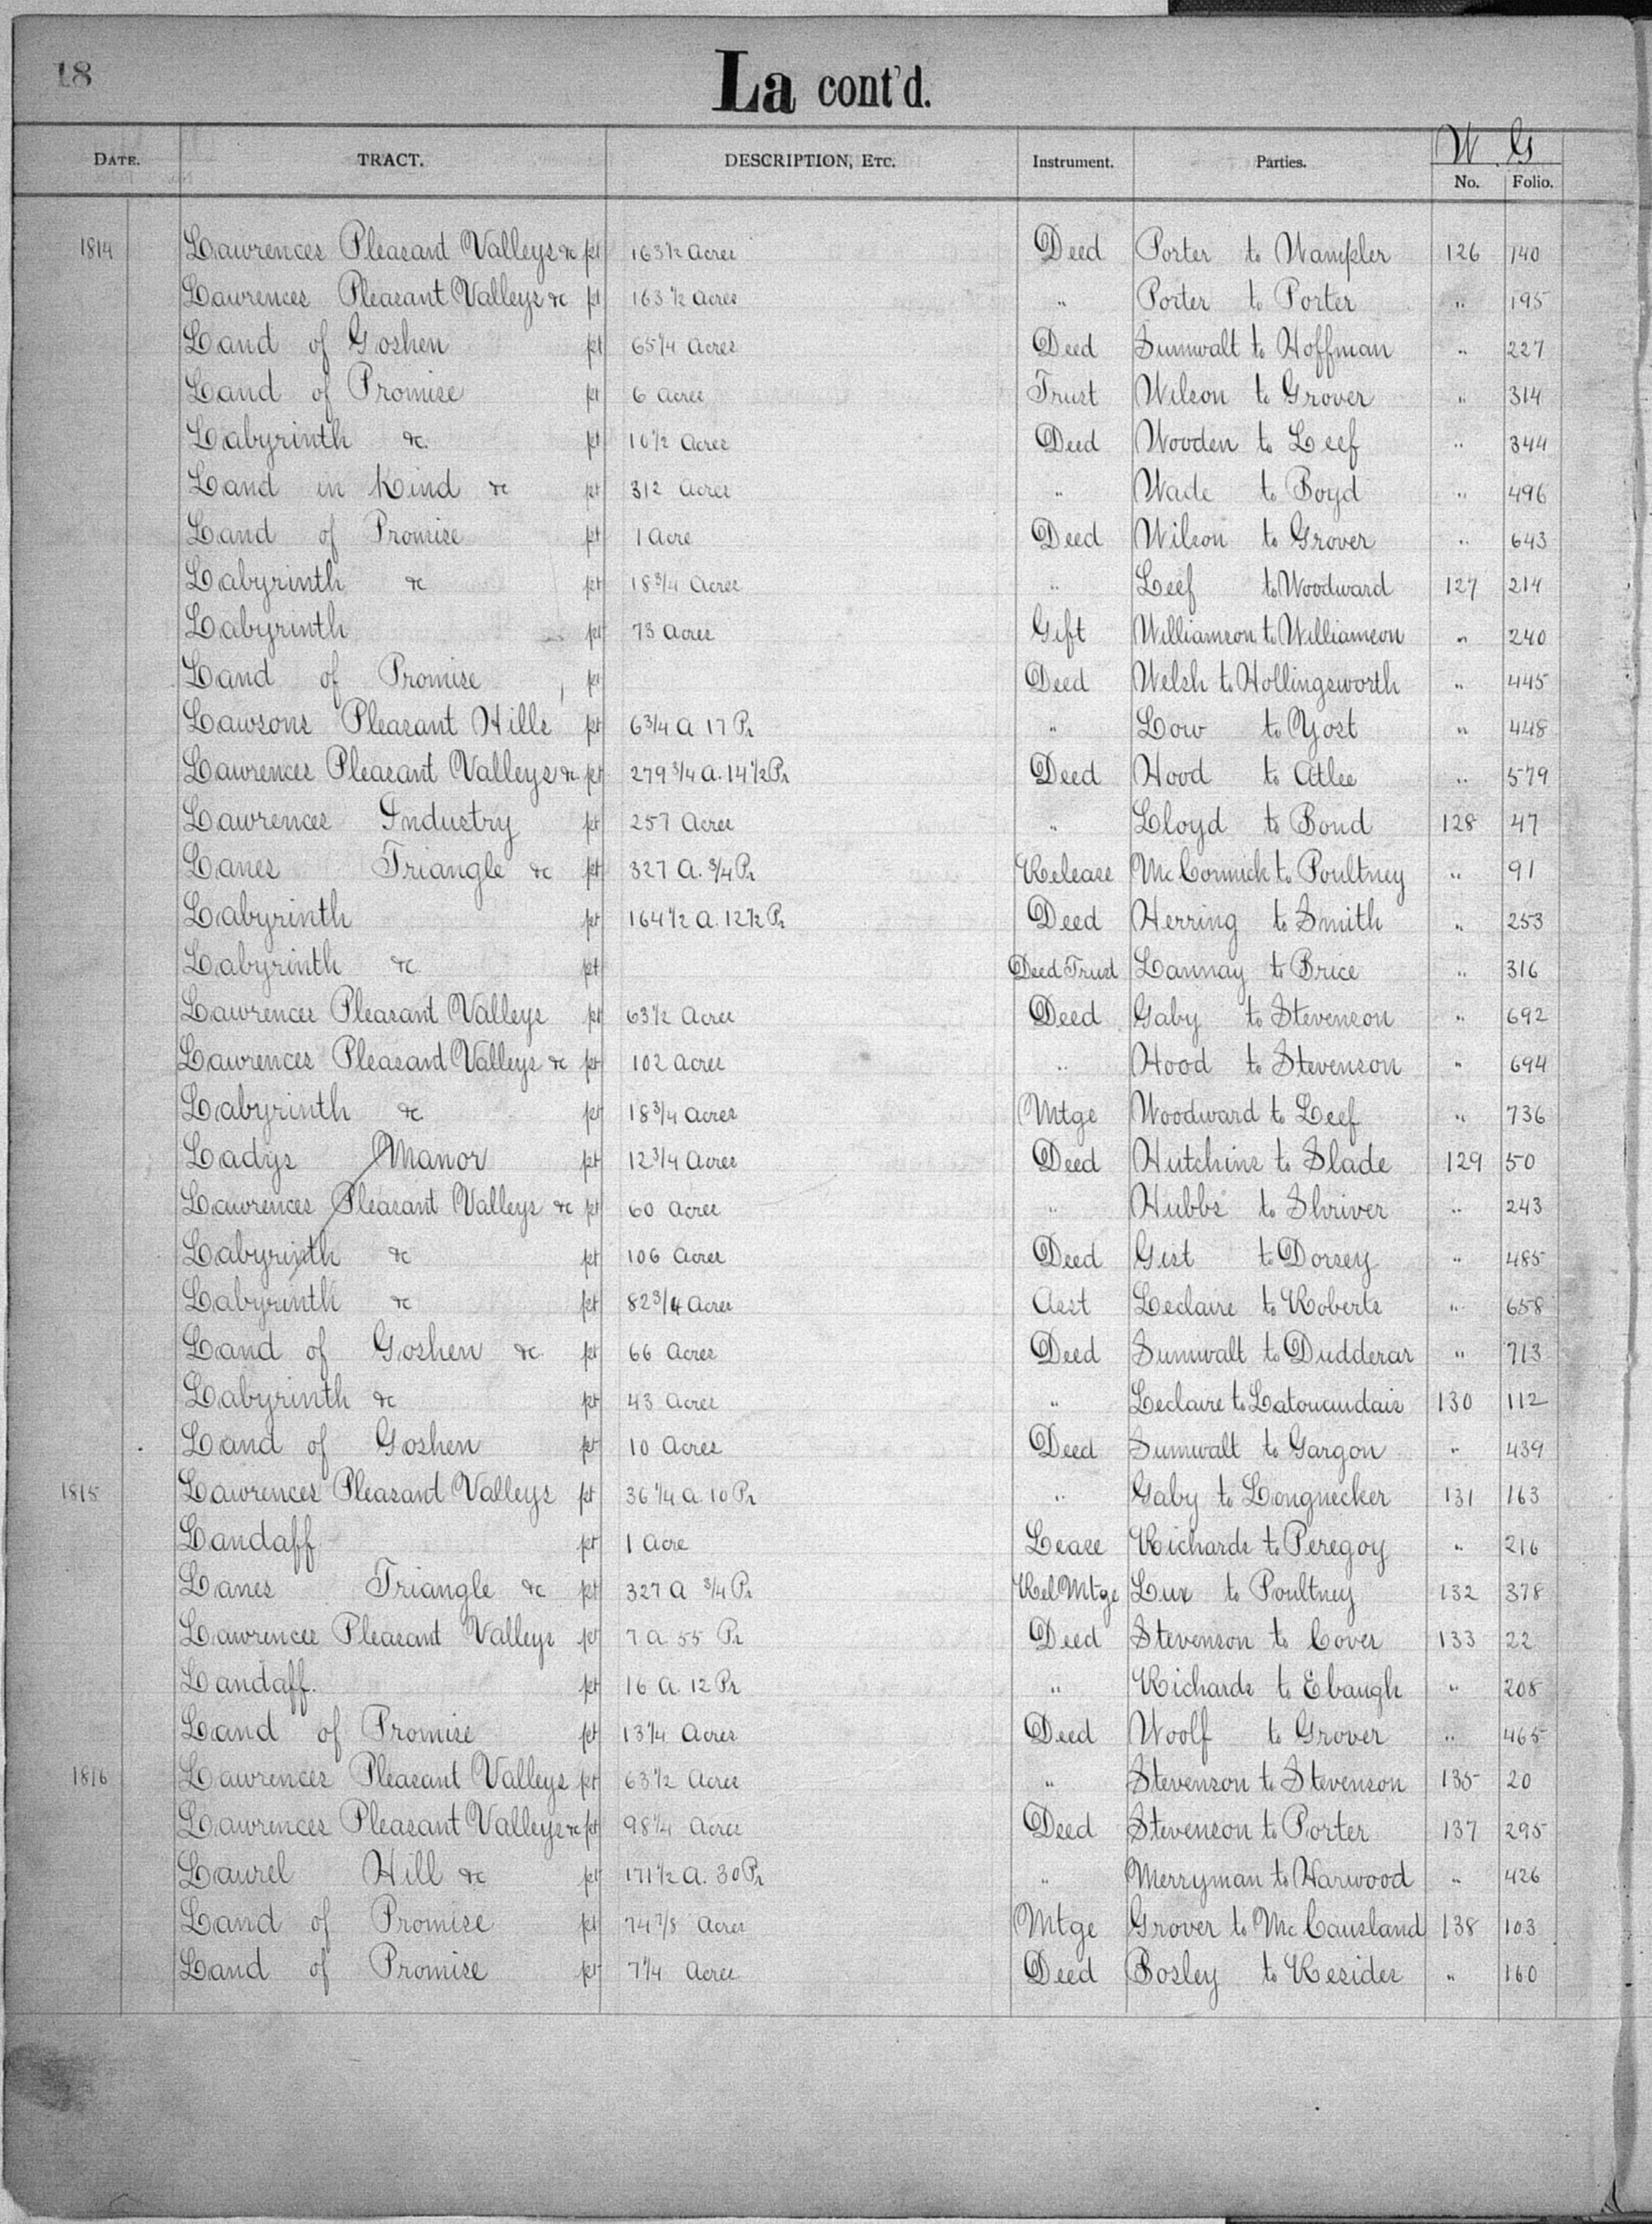 18
La cont'd.
W G
DATE. TRACT. DESCRIPTION, ETC. Instrument. Parties. No. Folio.
1814 Lawrences Pleasant Valleys &c pt 163 1/2 Acres Deed Porter to Wampler 126 140
Lawrences Pleasant Valleys &c pt 163 1/2 Acres " Porter to Porter " 195
Land of Goshen pt 65 1/4 Acres Deed Sumwalt to Hoffman " 227
Land of Promise pt 6 Acres Trust Wilson to Grover " 314
Labyrinth &c pt 10 1/2 Acres Deed Wooden to Leef " 344
Land in Kind &c pt 312 Acres " Wade to Boyd " 496
Land of Promise pt 1 Acre Deed Wilson to Grover " 643
Labyrinth &c pt 18 3/4 Acres " Leef to Woodward 127 214
Labyrinth pt 73 Acres Gift Williamson to Williamson " 240
Land of Promise pt Deed Welsh to Hollingsworth " 445
Lawsons Pleasant Hills pt 6 3/4 A 17 Pr " Low to Yost " 448
Lawrences Pleasant Valleys &c pt 279 3/4 A. 14 1/2 Pr Deed Hood to Atlee " 579
Lawrences Industry pt 257 Acres " Lloyd to Bond 128 47
Lanes Triangle &c pt 327 A. 3/4 Pr Release McCormick to Poultney " 91
Labyrinth pt 164 1/2 A. 12 1/2 Pr Deed Herring to Smith " 253
Labyrinth &c pt Deed Trust Lannay to Brice " 316
Lawrences Pleasant Valleys pt 63 1/2 Acres Deed Gaby to Stevenson " 692
Lawrences Pleasant Valleys &c pt 102 Acres " Hood to Stevenson " 694
Labyrinth &c pt 18 3/4 Acres Mtge Woodward to Leef " 736
Ladys Manor pt 12 3/4 Acres Deed Hutchins to Slade 129 50
Lawrences Pleasant Valleys &c pt 60 Acres " Hubbs to Shriver " 243
Labyrinth &c pt 106 Acres Deed Gist to Dorsey " 485
Labyrinth &c pt 82 3/4 Acres Asst Leclaire to Roberts " 658
Land of Goshen &c pt 66 Acres Deed Sumwalt to Dudderar " 713
Labyrinth &c pt 43 Acres " Leclaire to 130 112
Land of Goshen pt 10 Acres Deed Sumwalt to Gargon " 439
1815 Lawrences Pleasant Valleys pt 36 1/4 A 10 Pr " Gaby to Longnecker 131 163
Landaff pt 1 Acre Lease Richards to Peregoy " 216
Lanes Triangle &c pt 327 A 3/4 Pr Rel Mtge Lux to Poultney 132 378
Lawrences Pleasant Valleys pt 7 A 55 Pr Deed Stevenson to Cover 133 22
Landaff. pt 16 A. 12 Pr " Richards to Ebaugh " 208
Land of Promise pt 13 1/4 Acres Deed Woolf to Grover " 465
1816 Lawrences Pleasant Valleys pt 63 1/2 Acres " Stevenson to Stevenson 135 20
Lawrences Pleasant Valleys &c pt 98 1/4 Acres Deed Stevenson to Porter 137 295
Laurel Hill &c pt 171 1/2 A. 30 Pr " Merryman to Harwood " 426
Land of Promise pt 74 7/8 Acres Mtge Grover to McCausland 138 103
Land of Promise pt 7 1/4 Acres Deed Bosley to Resides " 160